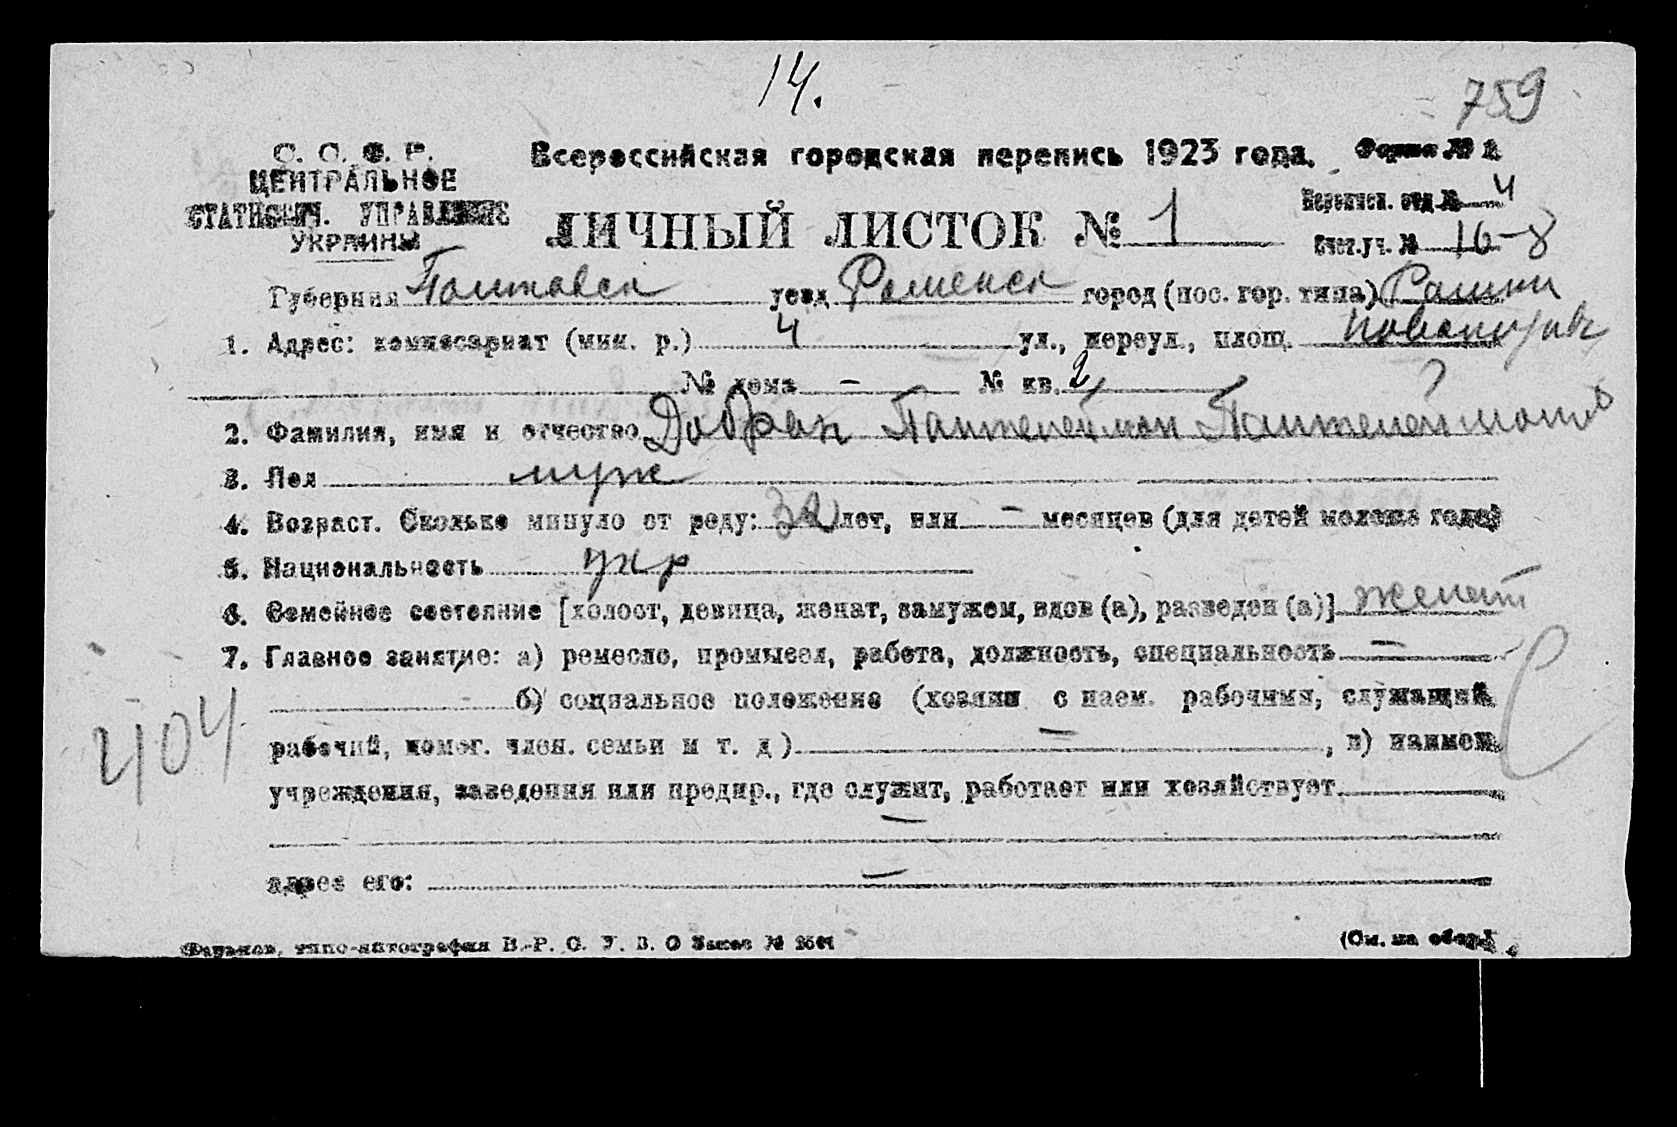 14.
759
С. С. Ф. Р.
ЦЕНТРАЛЬНОЕ
СТАТИСТИЧ. УПРАВЛЕНИЕ
УКРАИНЫ
Всероссийская городская перепись 1923 года. Форма №
Переписн. отд. № 4
ЛИЧНЫЙ ЛИСТОК № 1
Счет. уч. № 16-8
Губерния Полтавск уезд Роменск город (пос. гор. типа)
1. Адрес: комиссариат (мил. р.) 4 ул., переул., площ.
№ дома — № кв. 2
2. Фамилия, имя и отчество Добран Пантелеймон Пантелеймонов
3. Пол муж
4. Возраст. Сколько минуло от роду: 32 лет, или — месяцев (для детей моложе года)
5. Национальность укр
6. Семейное состояние [холост, девица, женат, замужем, вдов (а), разведен (а)] женат
7. Главное занятие: а) ремесло, промысел, работа, должность, специальность —
б) социальное положение (хозяин с наем. рабочими, служащий,
404
рабочий, помог. член. семьи и т. д) —, в) наимен.
учреждения, заведения или предпр., где служит, работает или хозяйствует
—
адрес его: —
типо-литография В.-Р. С. У. В. О Заказ №
(См. на обор.)